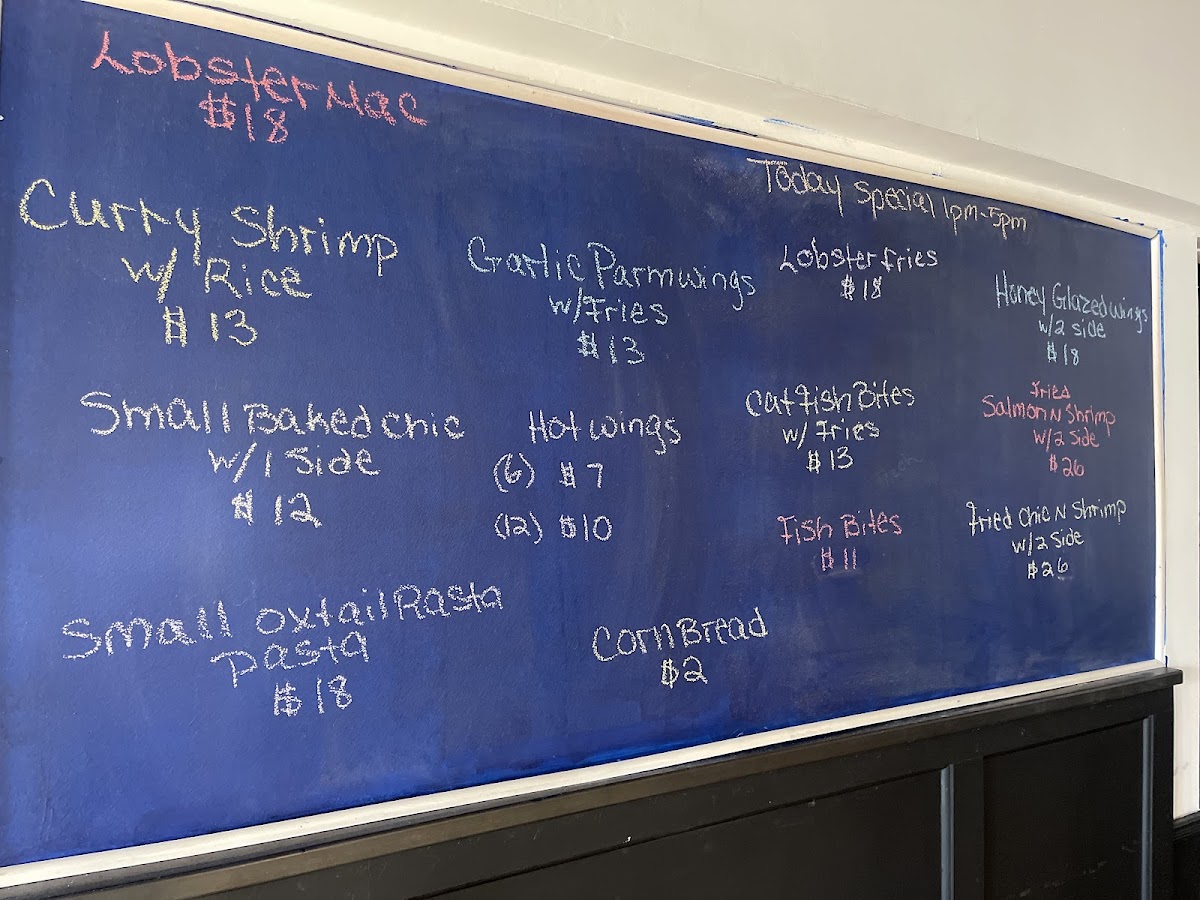 Lobster Mac
$18
Curry Shrimp
w/ Rice
$13
Small Baked Chic
w/1 Side
$12
Small Oxtail Rasta
Pasta
$18
Garlic Parm wings
w/Fries
$13
Hot wings
(6) $7
(12) $10
Corn Bread
$2
Today Special 1pm-5pm
Lobster fries
$18
Catfish Bites
w/ Fries
$13
Fish Bites
$11
Honey Glazed wings
w/2 side
$18
Fried
Salmon N Shrimp
w/2 Side
$26
Fried Chic N Shrimp
w/2 Side
$26